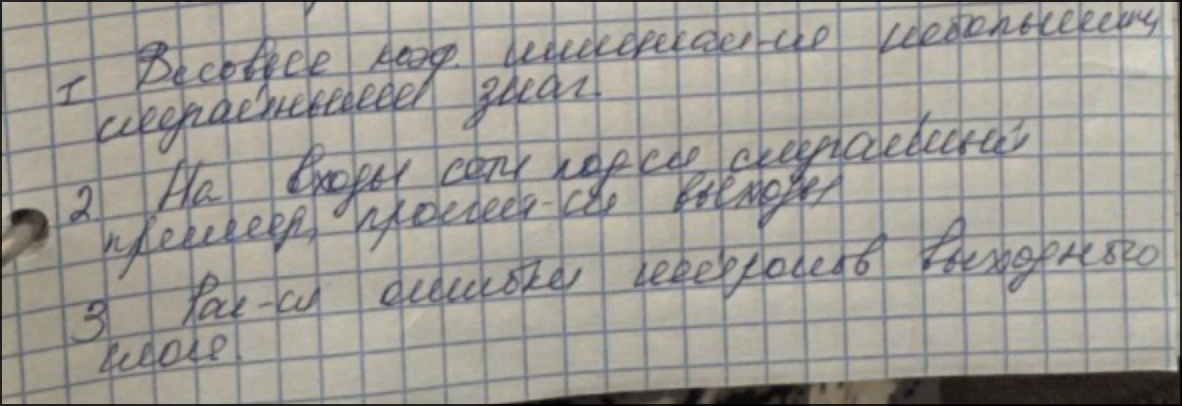 1 Весовые коэф. инициал-ся небольшими
случайными знач.
2 На входы сети подся случайный
пример, просчит-ся выходы
3 Рас-ся ошибки нейронов выходного
слоя.